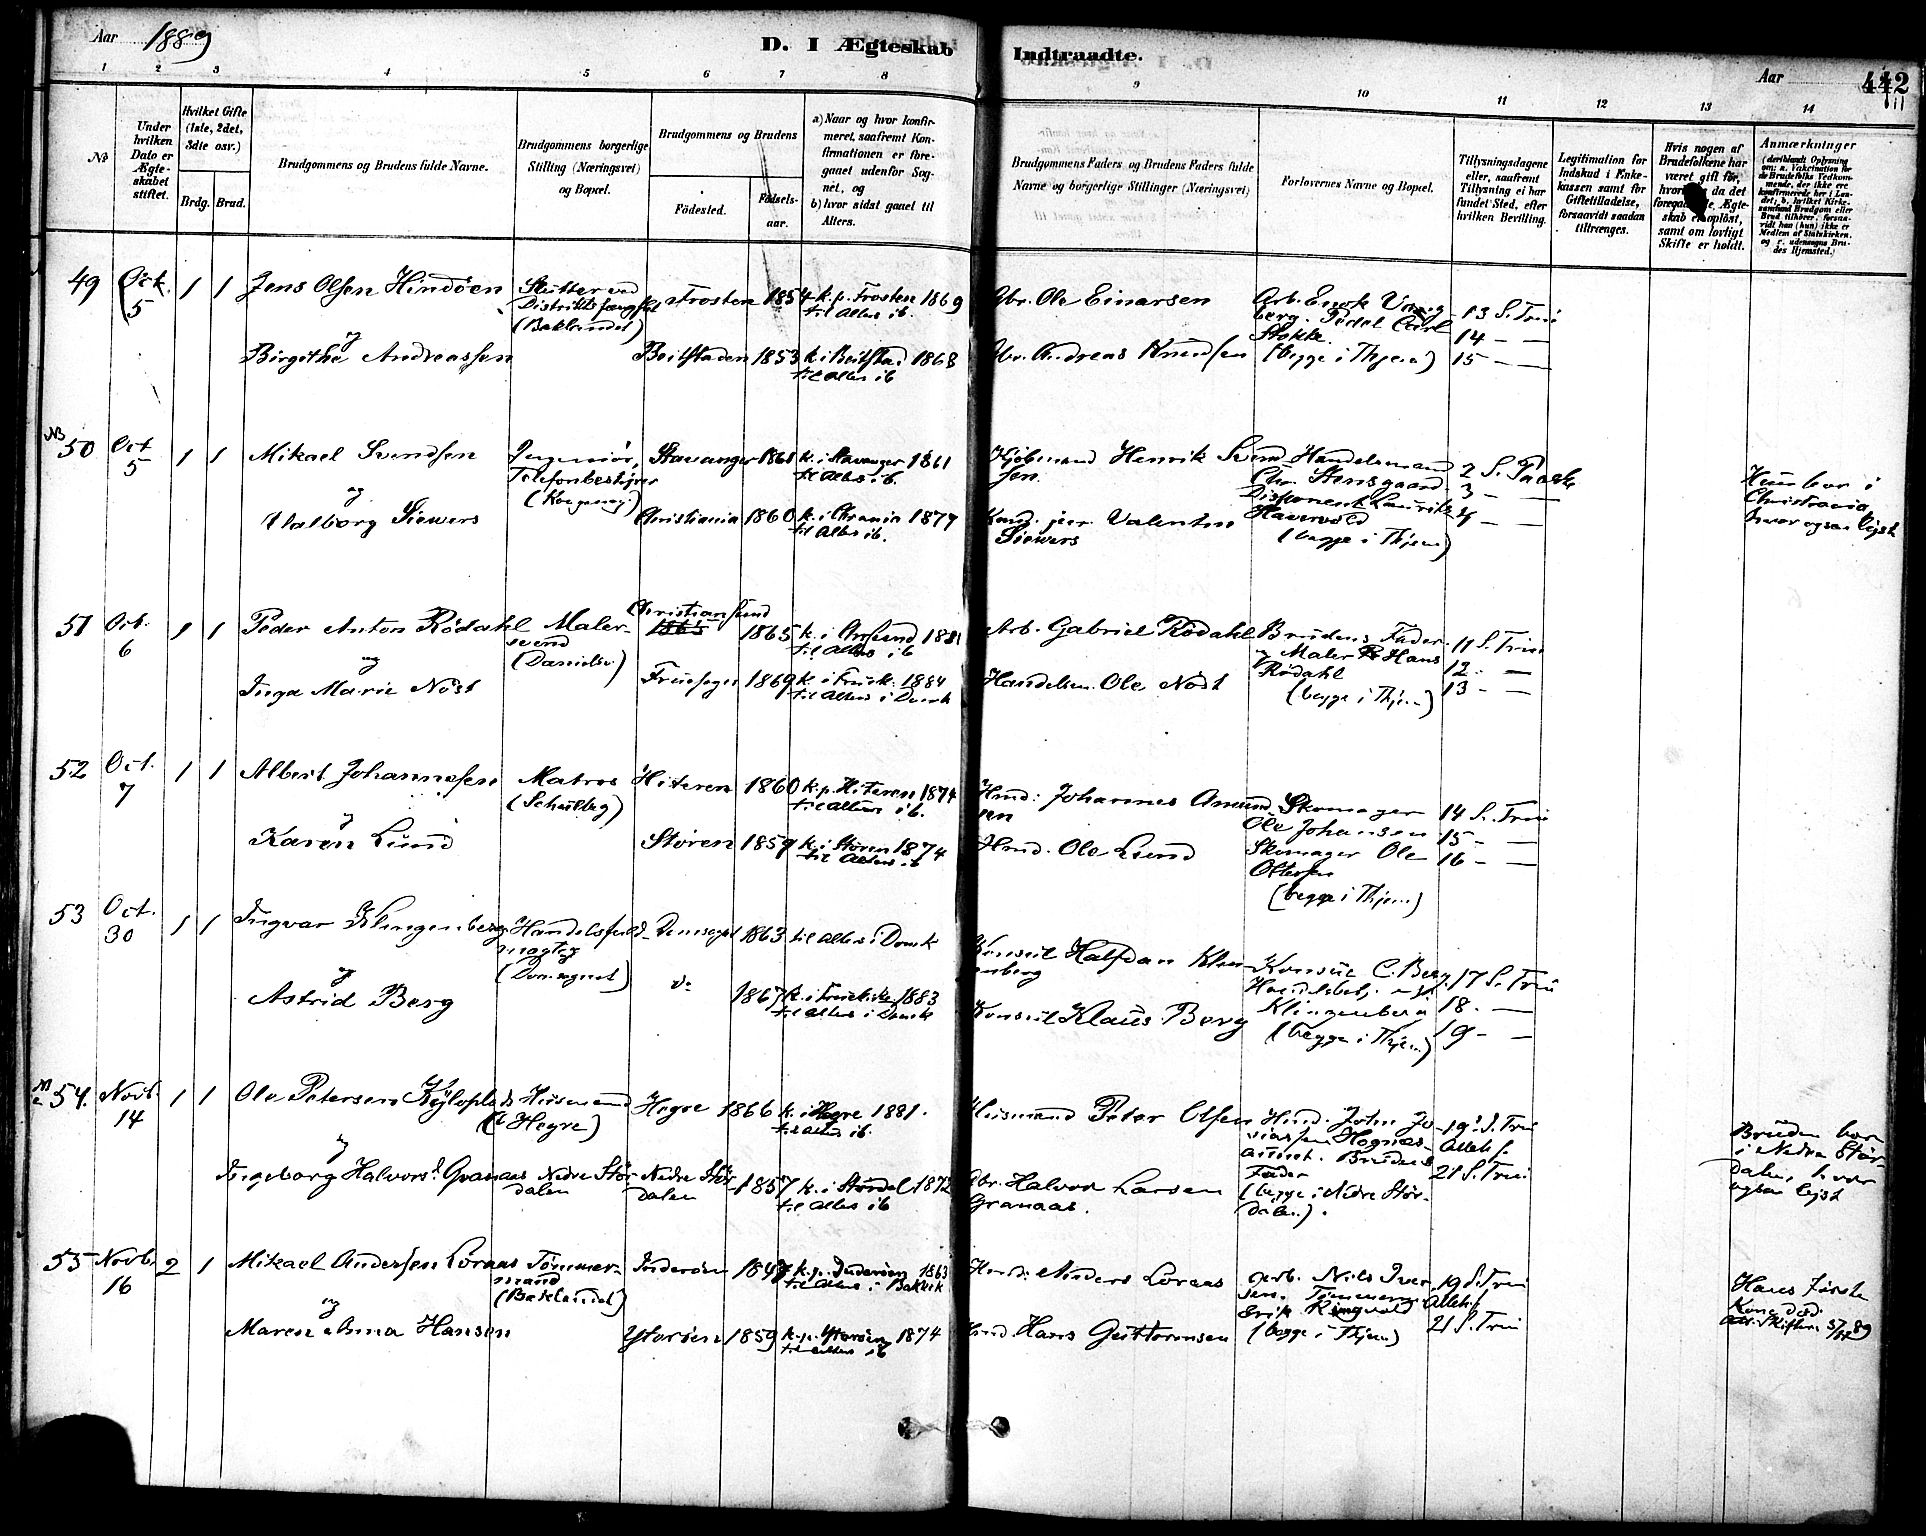 Aar 1889
D. I Ægteskab Indtraadte.
Aar 442
1 2 3 4 5 6 7 8 9 10 11 12 13 14
No
Under hvilken Dato er Ægteskabet stiftet.
Hvilket Gifte (1ste, 2det, 3die osv.)
Brdg. Brud.
Brudgommens og Brudens fulde Navne.
Brudgommens borgerlige Stilling (Næringsvei) og Bopæl.
Brudgommens og Brudens
Födested.
Födselsaar.
a) Naar og hvor konfirmeret, saafremt Konfirmationen er foregaaet udenfor Sognet, og
b) hvor sidst gaaet til Alters.
Brudgommens Faders og Brudens Faders fulde Navne og borgerlige Stillinger (Næringsvei)
Forlovernes Navne og Bopæl.
Tillysningsdagene eller, saafremt Tillysning ei har fundet Sted, efter hvilken Bevilling.
Legitimation for Indskud i Enkekassen samt for Giftetilladelse, forsaavidt saadan tiltrænges.
Hvis nogen af Brudefolkene har været gift før, da det Ægteskab er oplöst, samt om lovligt Skifte er holdt.
Anmærkninger
49 Oct. 5 1 1 Jens Olsen Hindöen
Slutter ved Distriktsfængslet (Baklandet)
Frosten 1854 k. p. Frosten 1869 til Alters ib.
Gbr. Ole Einarsen
Arb. Enok Vangberg. Pedel Carl Stokke. (begge i Thjem)
13 S. Trin 14 — — 15 — —
og
Birgithe Andreassen
Beitstaden 1853 k. i Beitstad 1868 til Alters ib
Gbr. Andreas Knudsen
NB 50 Oct 5 1 1 Mikael Svendsen
Ingeniör, Telefonbestyrer (Kongensg)
Stavanger 1861 k. i Stavanger 1861 til Alters ib.
Kjöbmand Henrik Svendsen.
Handelsmand Chr. Stensgaard. Disponent Lauritz Havervold (begge i Thjem)
2 S. Paaske 3 — — 4 — —
Hun bor i Christiania, hvor ogsaa lyst
og
Valborg Siewers
Christiania 1860 k. i Chrania 1877 til Alters ib.
Kand. jur. Valentin Siewers
51 Oct. 6 1 1 Peder Anton Rödahl
Malersvend (Danielsv.)
Christiansund 1865 k. i Chrsund 1881 til Alters ib
Arb. Gabriel Rödahl
Brudens Fader og Maler Hans Rödahl (begge i Thjem)
11 S. Trin 12 - — 13 - —
og
Inga Marie Nöst
Fruesogn 1869 k. i Fruek. 1884 til Alters i Domk
Handelsm. Ole Nöst
52 Oct. 7 1 1 Albert Johannesen
Matros (Schultzg)
Hiteren 1860 k. p. Hiteren 1874 til Alters ib.
Hmd: Johannes Amundsen
Skomager Ole Johansen Skomager Ole Ottersen (begge i Thjem)
14 S. Trin 15 - — 16 - —
og
Karen Lund
Stören 1859 k. i Stören 1874 til Alters ib
Hmd. Ole Lund
53 Oct. 30 1 1 Ingvar Klingenberg
Handelsfuldmægtig (Domsognet)
Domsognet 1863 til Alters i Domk
Konsul Halfdan Klingenberg
Konsul C. Berg. Klingenberg (begge i Thjem)
17 S. Trin 18. — 19 - —
og
Astrid Berg
do 1867 k. i Fruekirke 1883 til Alters i Domk
Konsul Klaus Berg
54. Novb. 14 1 1 Ole Petersen Kyloplads
Husmand (i Hegre)
Hegre 1866 k. i Hegre 1881. til Alters ib.
Husmand Peter Olsen
Hmd. John Brudens Fader (begge i Nedre Stördalen).
19 S. Trin Alleh f. 21 S. Trin
Bruden bor i Nedre Stördalen, hvor ogsaa lyst
og
Ingeborg Halvorsd. Granaas
Nedre Stördalen
Nedre Stördalen 1857 k. i Stördal 1872 til Alters ib
Gbr. Halvor Larsen Granaas.
55 Novb. 16 2 1 Mikael Andersen Loraas
Tömmermand (Baklandet)
Inderöen 1847 k. p. Inderöen 1863 til Alters i Bakkek
Hmd: Anders Loraas
Arb. Nils Iversen. Tömmerm. Erik Ringvold (begge i Thjem)
19 S. Trin Alleh f. 21 S. Trin
Hans förste Kone död
og
Maren Anna Hansen
Ytteröen 1859 k. p. Ytteröen 1874 til Alters ib
Hmd. Hans Guttormsen